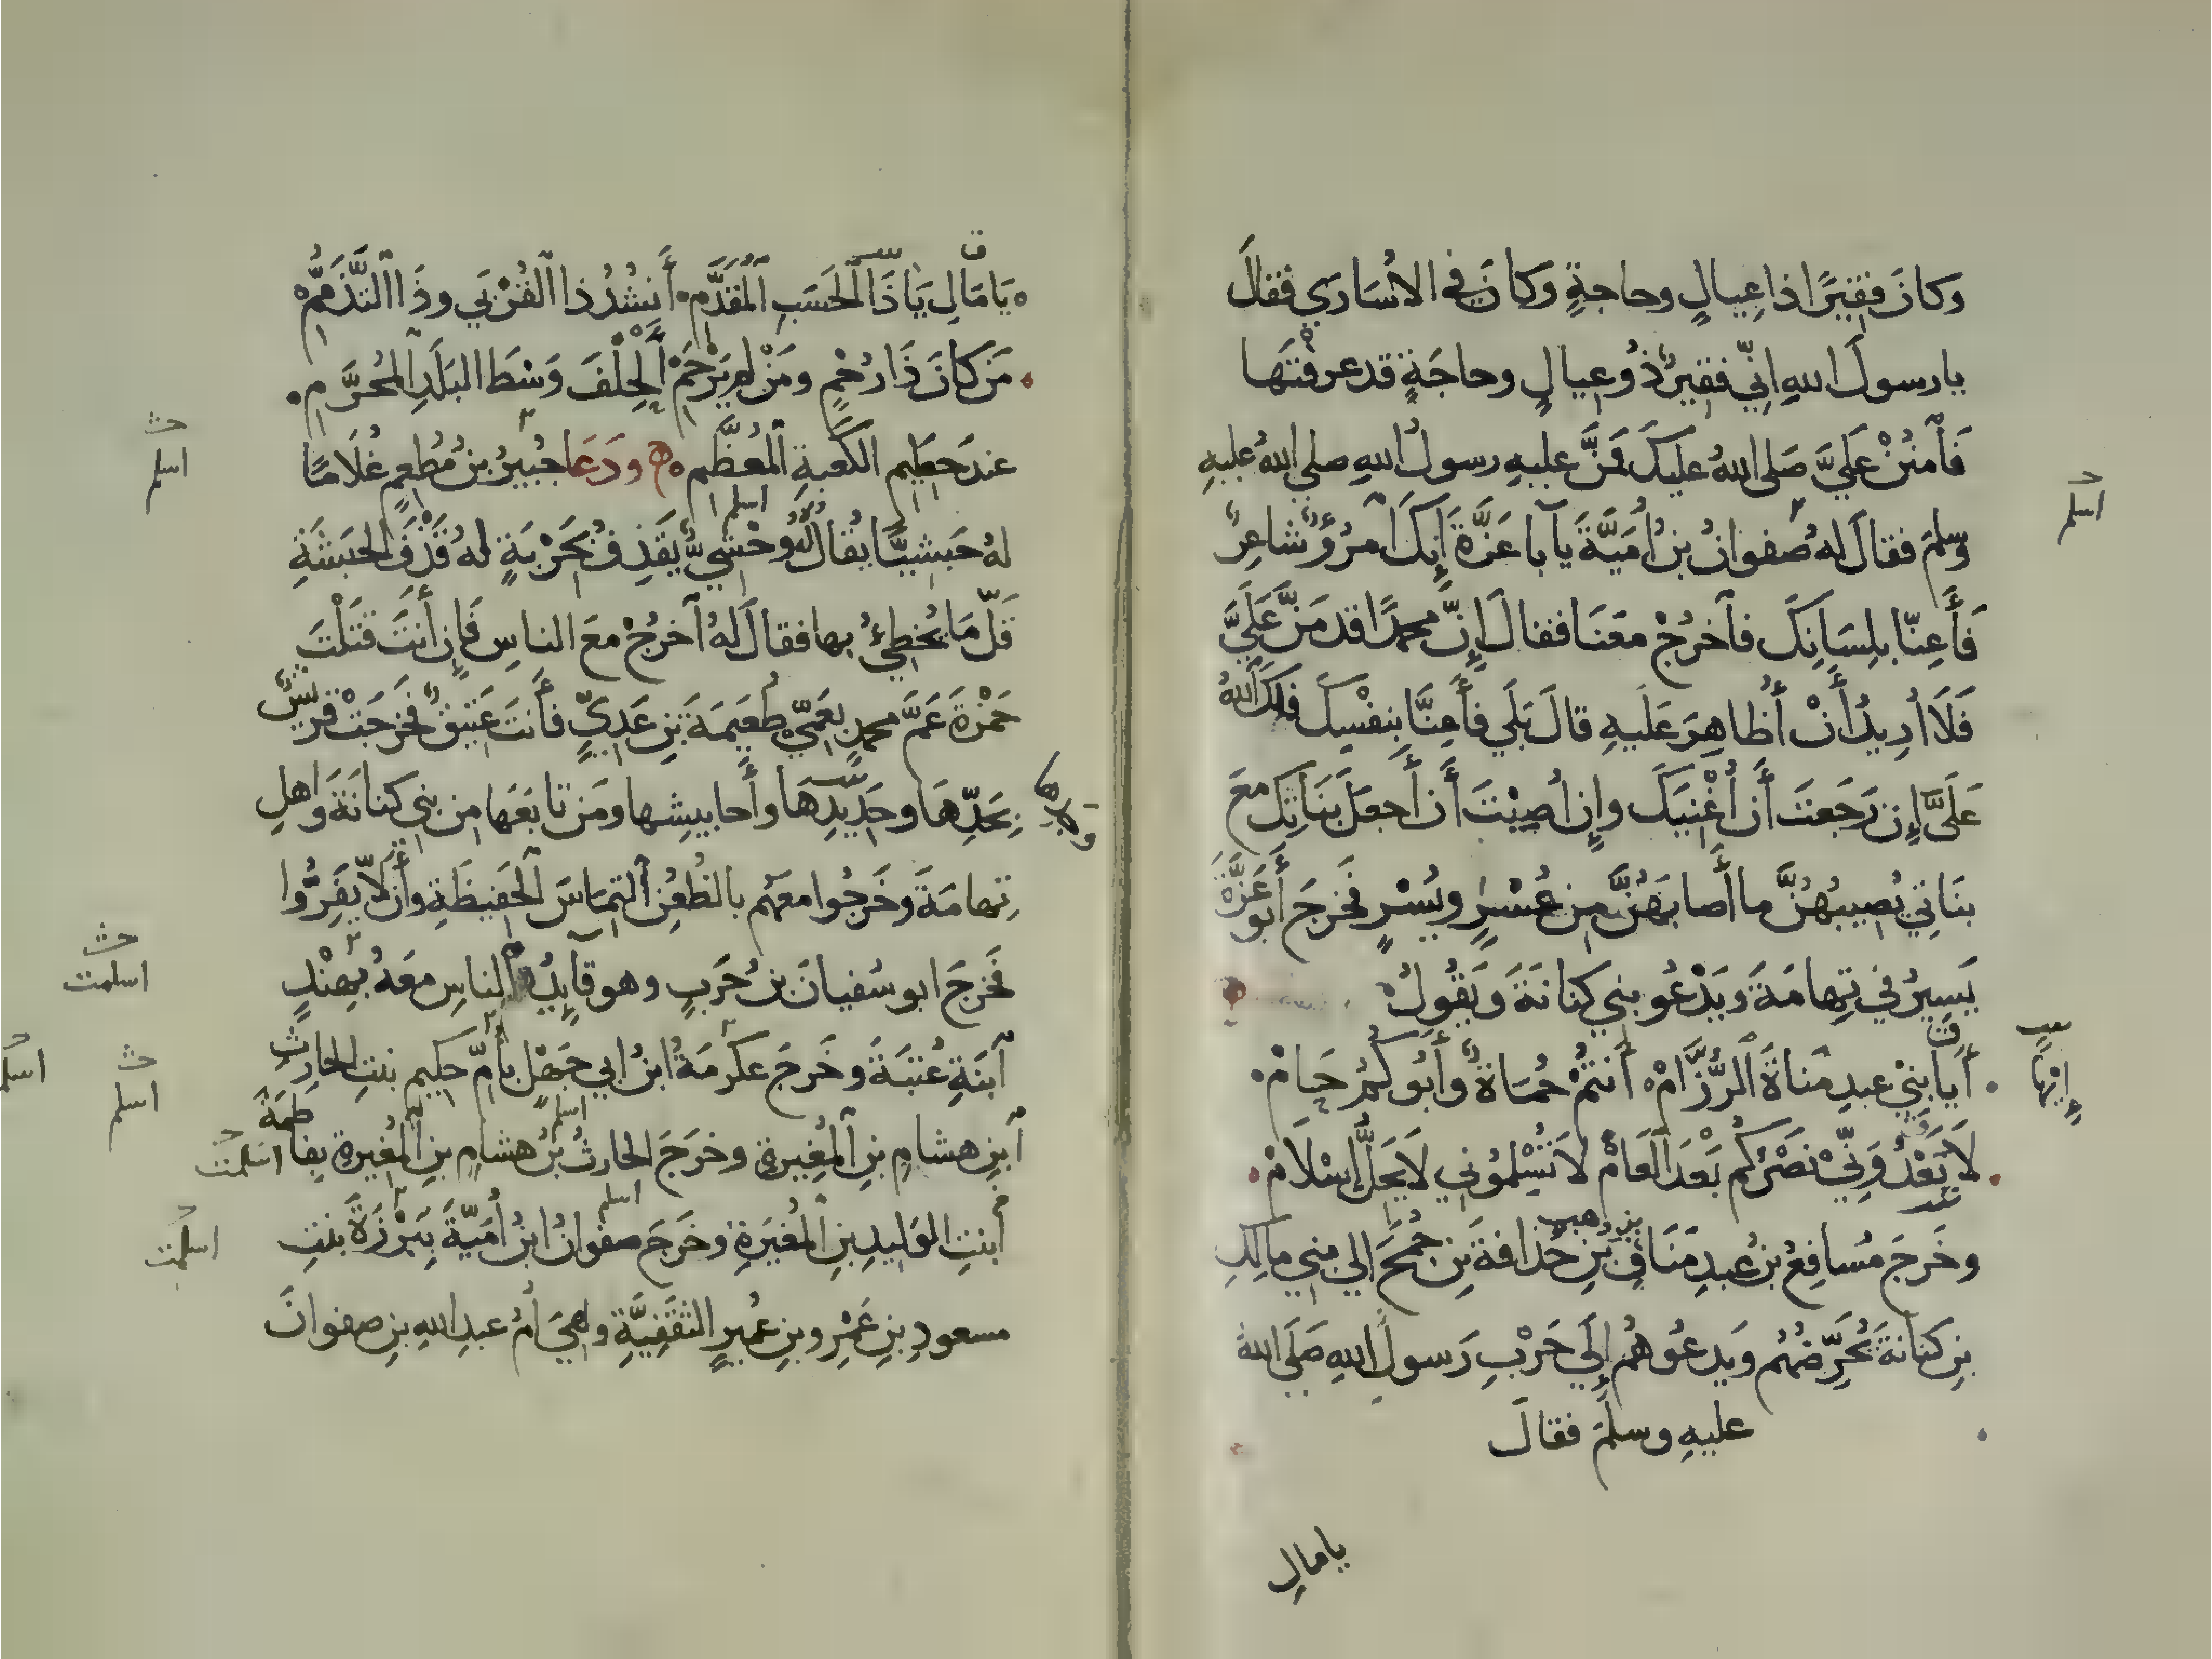 وكانَ فقيرًا ذا عِيالٍ وحاجةٍ وكانَ في الأُسَاري فقالَ
يا رسولَ اللهِ اِنّي فقيرٌ ذُو عيالٍ وحاجَةٍ قد عرفْتَها
فَاْمنُنْ عَلَيَّ صَلى اللهُ عليكَ فَمنَّ عليهِ رسولُ اللهِ صلى اللهُ عليهِ
وسلمَ فقالَ لهُ صَفوانُ بنُ اُمَيَّةَ يآ با عَزَّةَ إنكَ آمرُؤٌ شاعرٌ
فَأَعِنّا بلِسَانِكَ فآخرُجْ معَنَا فقالَ إِنَّ محمدًا قد مَنَّ عَلَيَّ
فَلَا اُرِيدُ أَنْ أُظاهِرَ عَلَيهِ قالَ بَلَي فَأَعِنَّا بنِفْسِكَ فلكَ اللهُ
عَلَيَّ إِن رَجَعتَ أَن أُغْنِيَكَ وإِن أُصِبْتَ أَن أَجعَلَ بَنَاتِكَ معَ
بنَاتي يُصيبُهُنَّ ما أَصابَهُنَّ مِن عُسْرٍ ويُسْرٍ فَخرجَ أَبو عَزَّةَ
يَسِيرُ في تِهامَةَ ويَدْعُو بني كنانَةَ وَيَقُولُ
أَيا بَنِيْ عبدِ مَناةَ الرُّزَّامْ أَنتمْ حُمَاةٌ وأَبُوكُمْ حَامْ
لَا يَعْدُوَنِّيْ نَصْرُكُم بَعْدَ العَامْ لَا تُسْلِمُوني لَا يَحَلَّ إِسْلَامْ
وخَرجَ مُسافِعُ بنُ عبدِ مَنَافِ بنِ وهبِ بنِ حُذَافةَ بنِ جُمحَ إلي بني مالكِ
بنِ كنانةَ يُحَرِّضُهُم ويَدعُوهُم إِلَي حَرْبِ رَسولِ اللهِ صَلَى اللهُ
عليهِ وسلمَ فقالَ
يا مالِ
اسلم
إِنْهَا
يَا مَالِ يَا ذَا الحَسَبِ المُقَدَّمِ أَنشُدُ ذا القُرْبَي وذَا التَّذَمُّمِ
مَن كانَ ذَا رُحْمٍ ومَنْ لم يَرْحَمْ أَلحِلْفَ وَسْطَ البَلَدِ المُحَرَّمِ
عندَ حَطِيمِ الكَعبةِ المُعظَّمِ ودَعَا جُبيرُ بنُ مُطعِمٍ غُلَامًا
لهُ حَبشِيًّا يقُالُ لهُ وَحْشيٌّ يَقذِفُ بحَرْبَةٍ لهُ قَذْفَ الحبَشَةِ
قَلَّ مَا يُخطِئُ بها فقالَ لهُ آخرُجْ معَ الناسِ فَإِن أَنتَ قَتلْتَ
حَمْزةَ عَمَّ محمدٍ بعَمِّيْ طُعَيمَةَ بنِ عَدِيٍّ فأَنتَ عَتيقٌ فَخرَجَتْ قريشٌ
بحَدِّهَا وحَدِيدِهَا وأَحابيشِها ومَن تابَعَها من بني كنانَةَ وَاهلِ
تِهامَةَ وخَرجُوا معَهُم بالظُعنِ التِمَاسَ الحَفيظَةِ وأَن لَّا يَفِرُّوا
فَخرجَ ابو سُفيانَ بنُ حَربٍ وهو قايدُ الناسِ معَهُ بهِنْدٍ
آبنَةِ عُتبَةَ وخَرجَ عكرمَةُ ابنُ ابي جَهْلٍ بأُمِّ حكيمٍ بنتِ الحارِثِ
آبنِ هشامِ بنِ المُغِيرةِ وخرَجَ الحارثُ بنُ هشامِ بنِ المُغيرةِ بفاطمةَ
أبنتِ الوَليدِ بنِ المُغيَرةِ وخَرجَ صفوانُ ابنُ أُمَيّةَ بِبَرْزَةَ بنتِ
مسعودِ بنِ عَمْرِو بنِ عُميرٍ الثقَفيَّةِ وهيَ أُمُّ عبدِ اللهِ بنِ صفوانَ
اسلم
اسلمت
اسلم
اسلمت
اسلمت